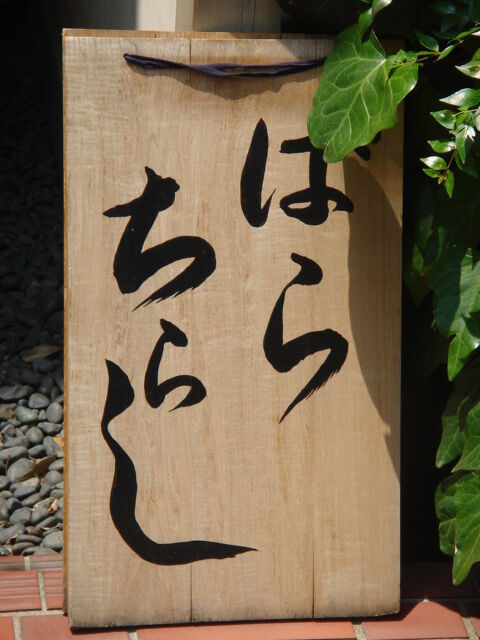 ばら
ちらし